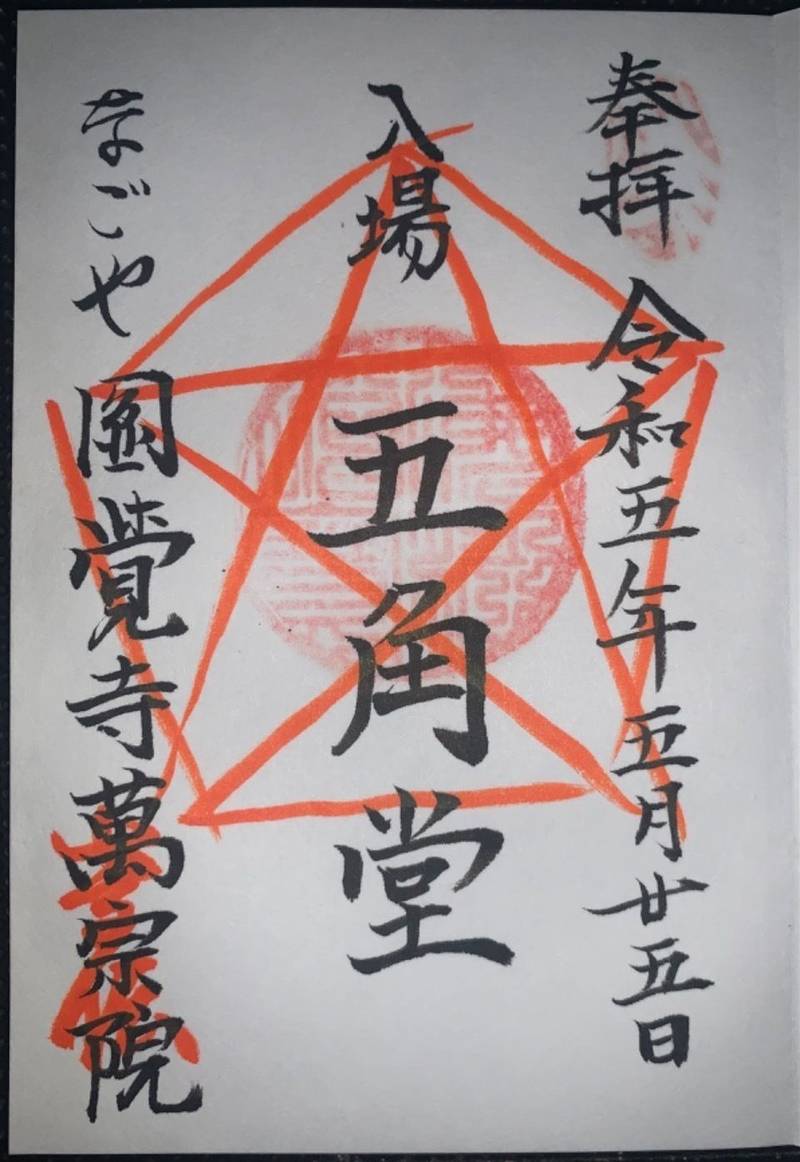 奉拝 令和五年五月廿五日
入場
五角堂
なごや 圓覺寺萬宗院